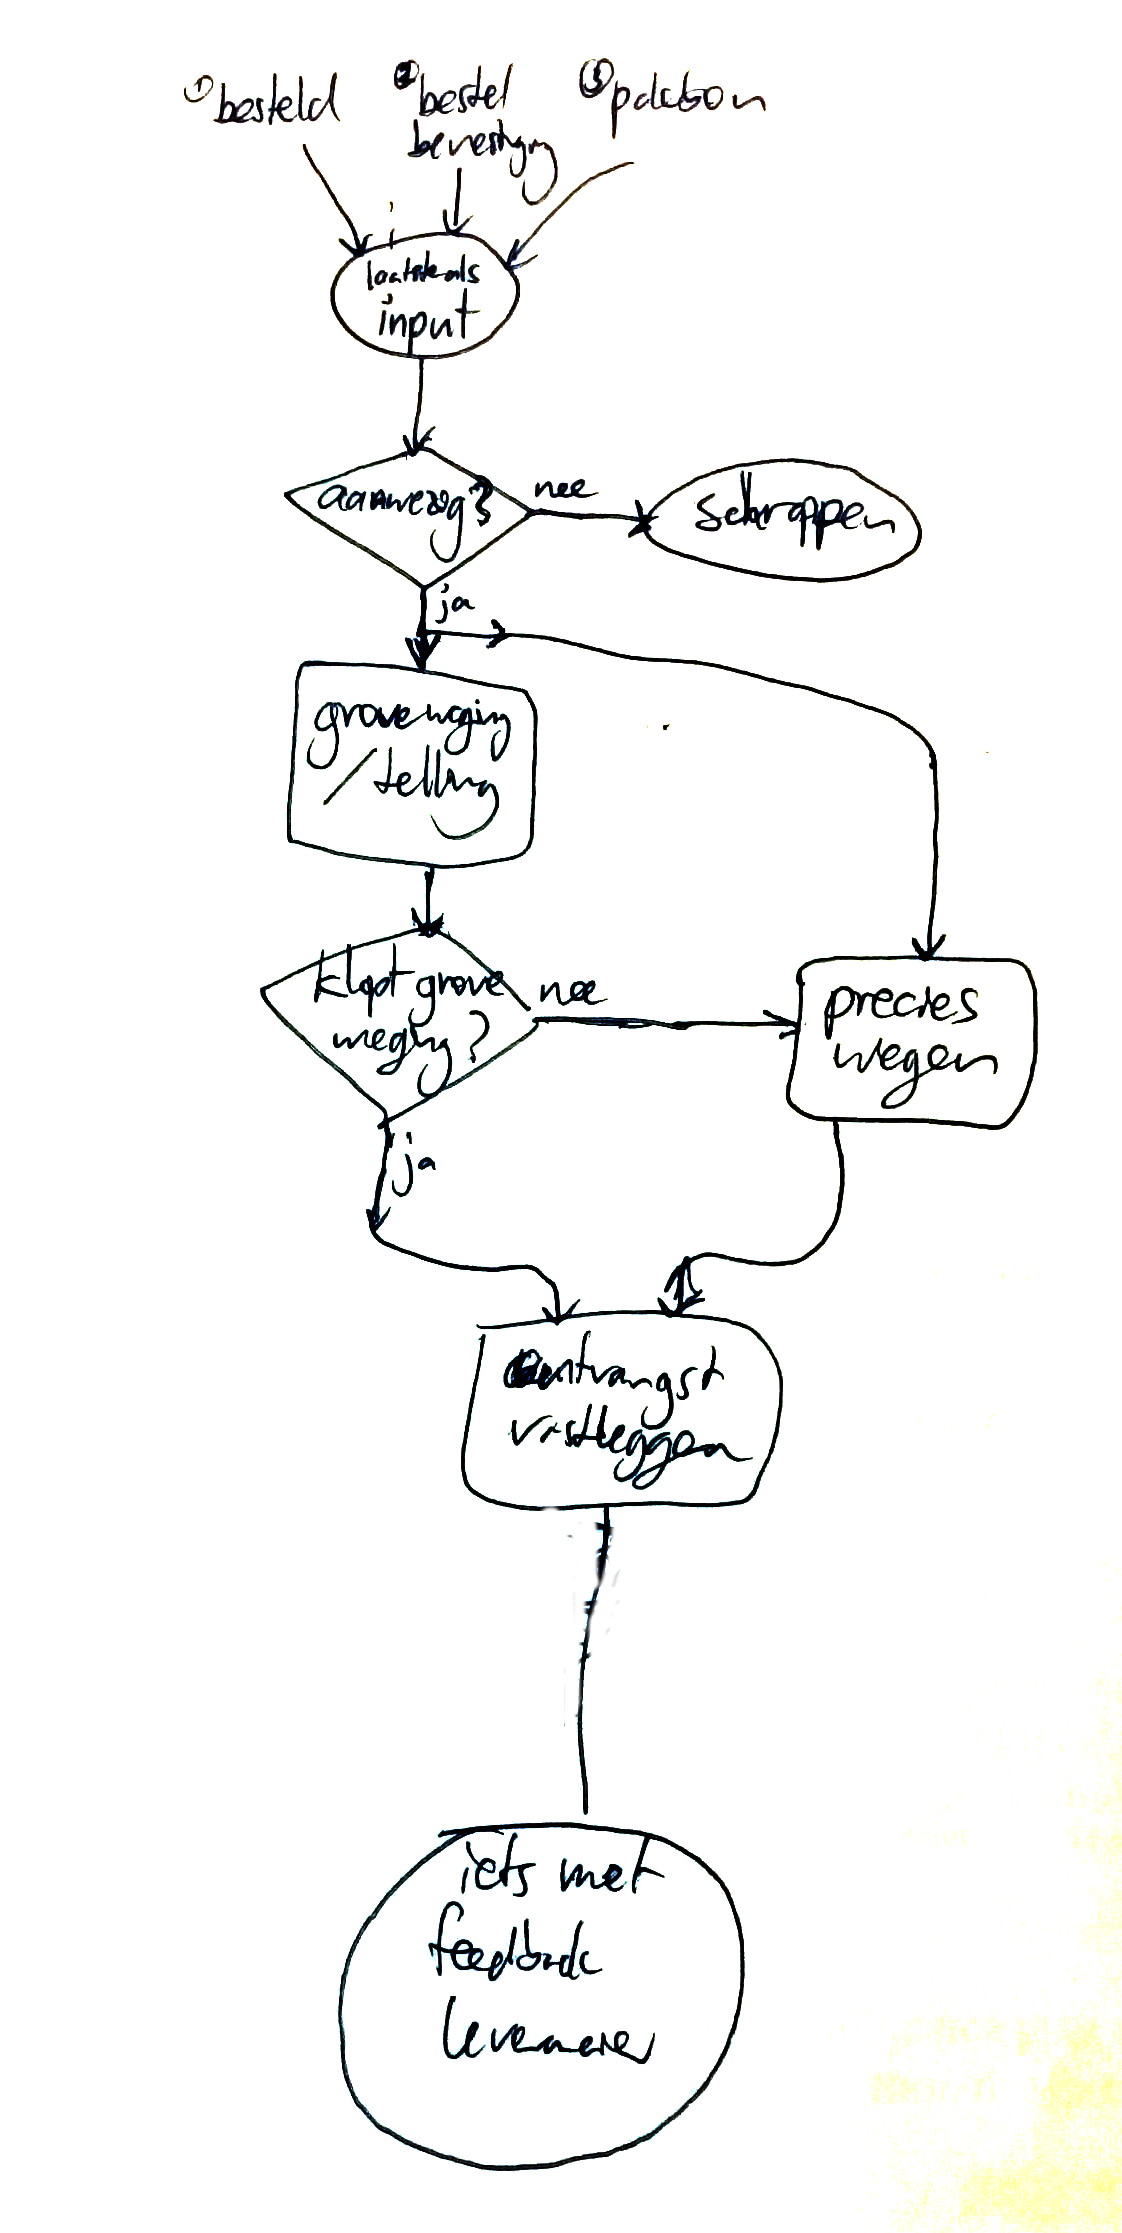 ① besteld
② bestel
bevestiging
③ pakbon
laatste als
input
aanwezig?
nee
schrappen
ja
grove weging
/ telling
klopt grove
weging?
nee
precies
wegen
ja
ontvangst
vastleggen
iets met
feedback
leverancier